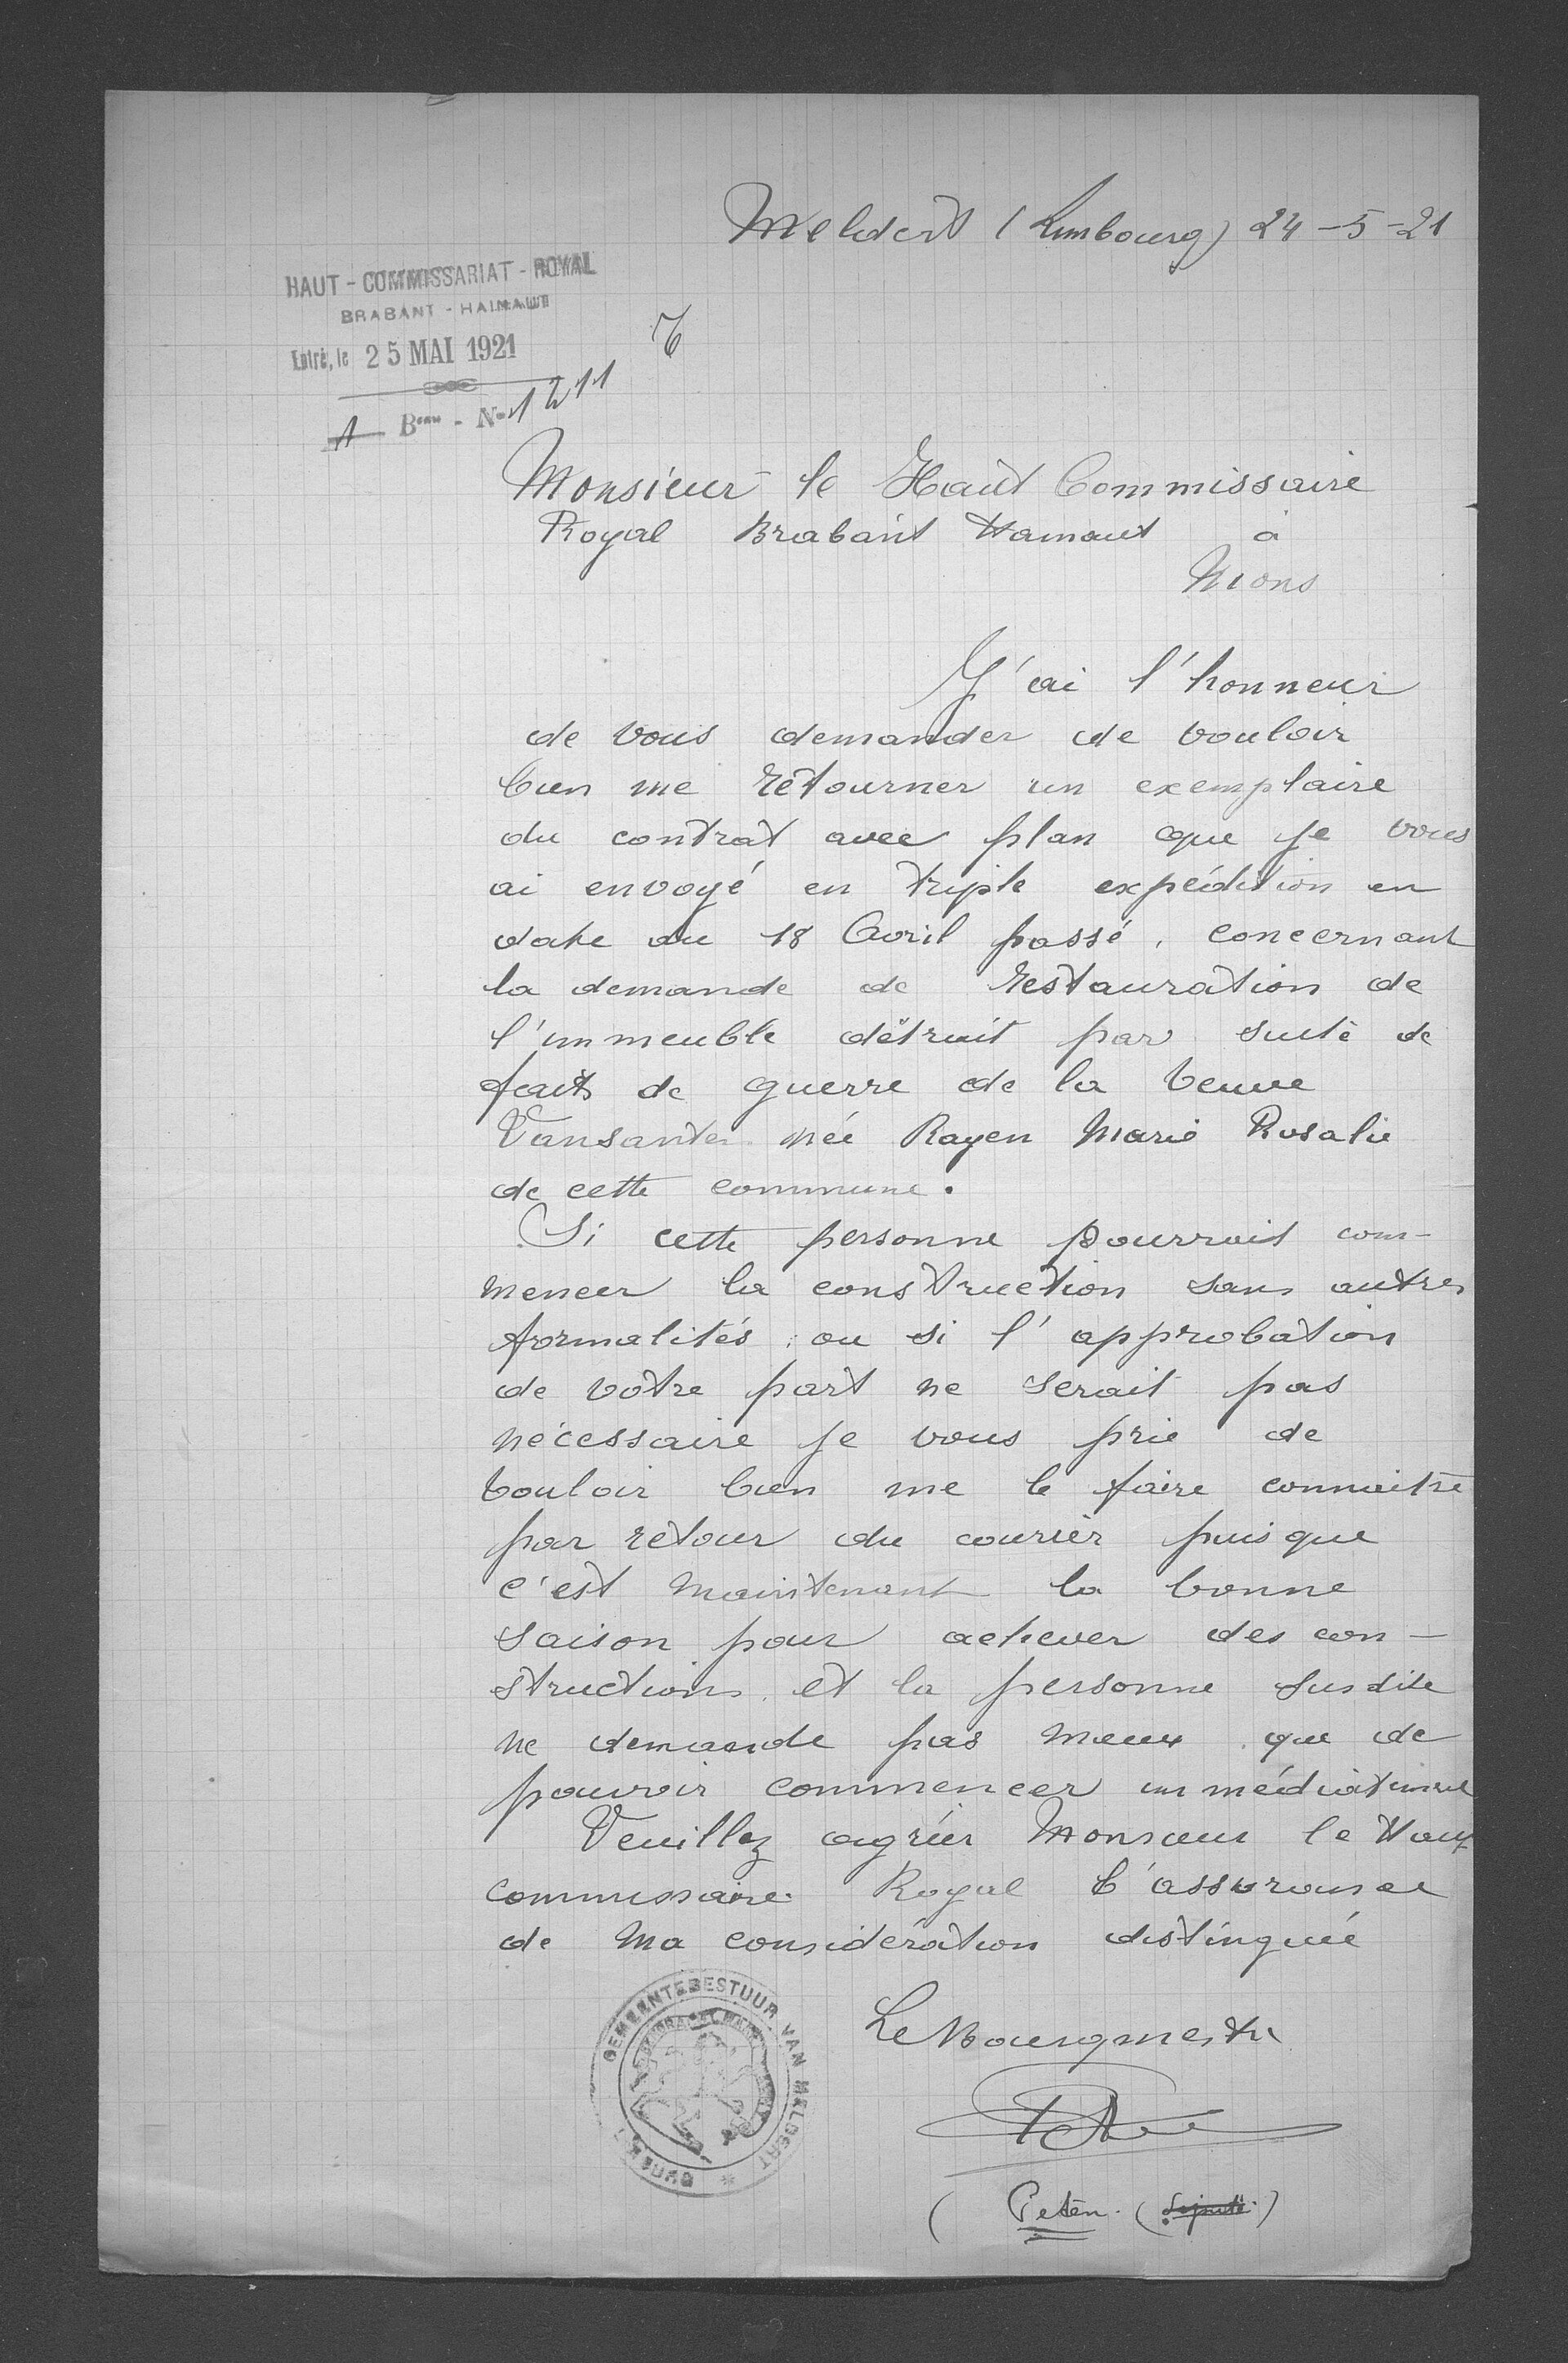 Meldert (Limbourg) 24-5-21
HAUT-COMMISSARIAT-ROYAL
BRABANT-HAINAUT
Entré, le 25 MAI 1921
1 Beau - No 1211
Monsieur le Haut Commissaire
Royal Brabant Hainaut à
Mons
J'ai l'honneur
de vous demander de vouloir
bien me retourner un exemplaire
du contrat avec plan que je vous
ai envoyé en triple expédition en
date du 18 Avril passé, concernant
la demande de restauration de
l'immeuble détruit par suite de
faits de guerre de la Veuve
Vansanter née Rayen Marie Rosalie
de cette commune.
Si cette personne pourrait com-
mencer la construction sans autres
formalités ou si l'approbation
de votre part ne serait pas
nécessaire je vous prie de
vouloir bien me le faire connaitre
par retour du courier puisque
c'est maintenant la bonne
saison pour achever des con-
structions et la personne susdite
ne demande pas mieux que de
pouvoir commencer immédiatement
Veuillez agréer Monsieur le Haut
commissaire Royal l'assurance
de ma considération distinguée
GEMEENTEBESTUUR VAN MELDERT
LIMBURG
Le Bourgmestre
(Peten. (député))